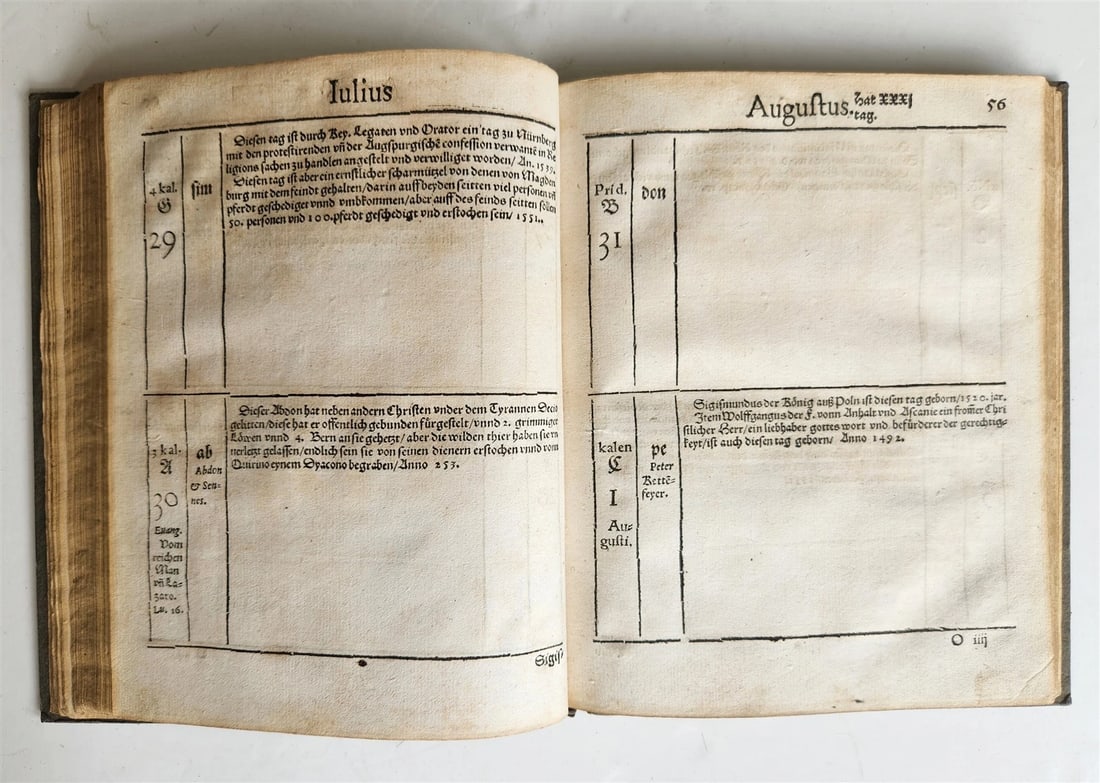 Iulius
4 kal.
G
29
sim
Diesen tag ist durch Key. Legaten vnd Orator ein tag zu Nürnberg
mit den protestirenden vñ der Augspurgischẽ confession verwantẽ in Re
ligions sachen zu handlen angestelt vnd verwilliget worden/ An. 1539.
Diesen tag ist aber ein ernstlicher scharmützel von denen von Magden
burg mit dem feindt gehalten/darin auff beyden seitten viel personen vñ
pferdt geschediget vnnd vmbkommen/aber auff des feinds seitten sollen
50. personen vnd 100. pferdt geschedigt vnd erstochen sein/ 1551.
3 kal.
A
30
Euang.
Vom
reichen
Man
vñ La⸗
zaro.
Lu. 16.
ab
Abdon
& Sen⸗
nes.
Dieser Abdon hat neben andern Christen vnder dem Tyrannen Decio
gelitten/diese hat er offentlich gebunden fürgestelt/vnnd 2. grimmiger
Löwen vnnd 4. Bern an sie gehetzt/ aber die wilden thier haben sie vn
uerletzt gelassen/endlich sein sie von seinen dienern erstochen vnnd vom
Quirino eynem Dyacono begraben/Anno 253.
Sigis⸗
Augustus. hat xxxj
tag.
56
Prid.
B
31
don
kalen
C
1
Au⸗
gusti.
pe
Peter
Kettẽ⸗
feyer.
Sigismundus der König auß Poln ist diesen tag geborn/1520. jar.
Item Wolffgangus der F. vonn Anhalt vnd Ascanie ein from̃er Chri
stlicher Herr/ein liebhaber gottes wort vnd befürderer der gerechtig⸗
keyt/ist auch diesen tag geborn/ Anno 1492.
O iiij